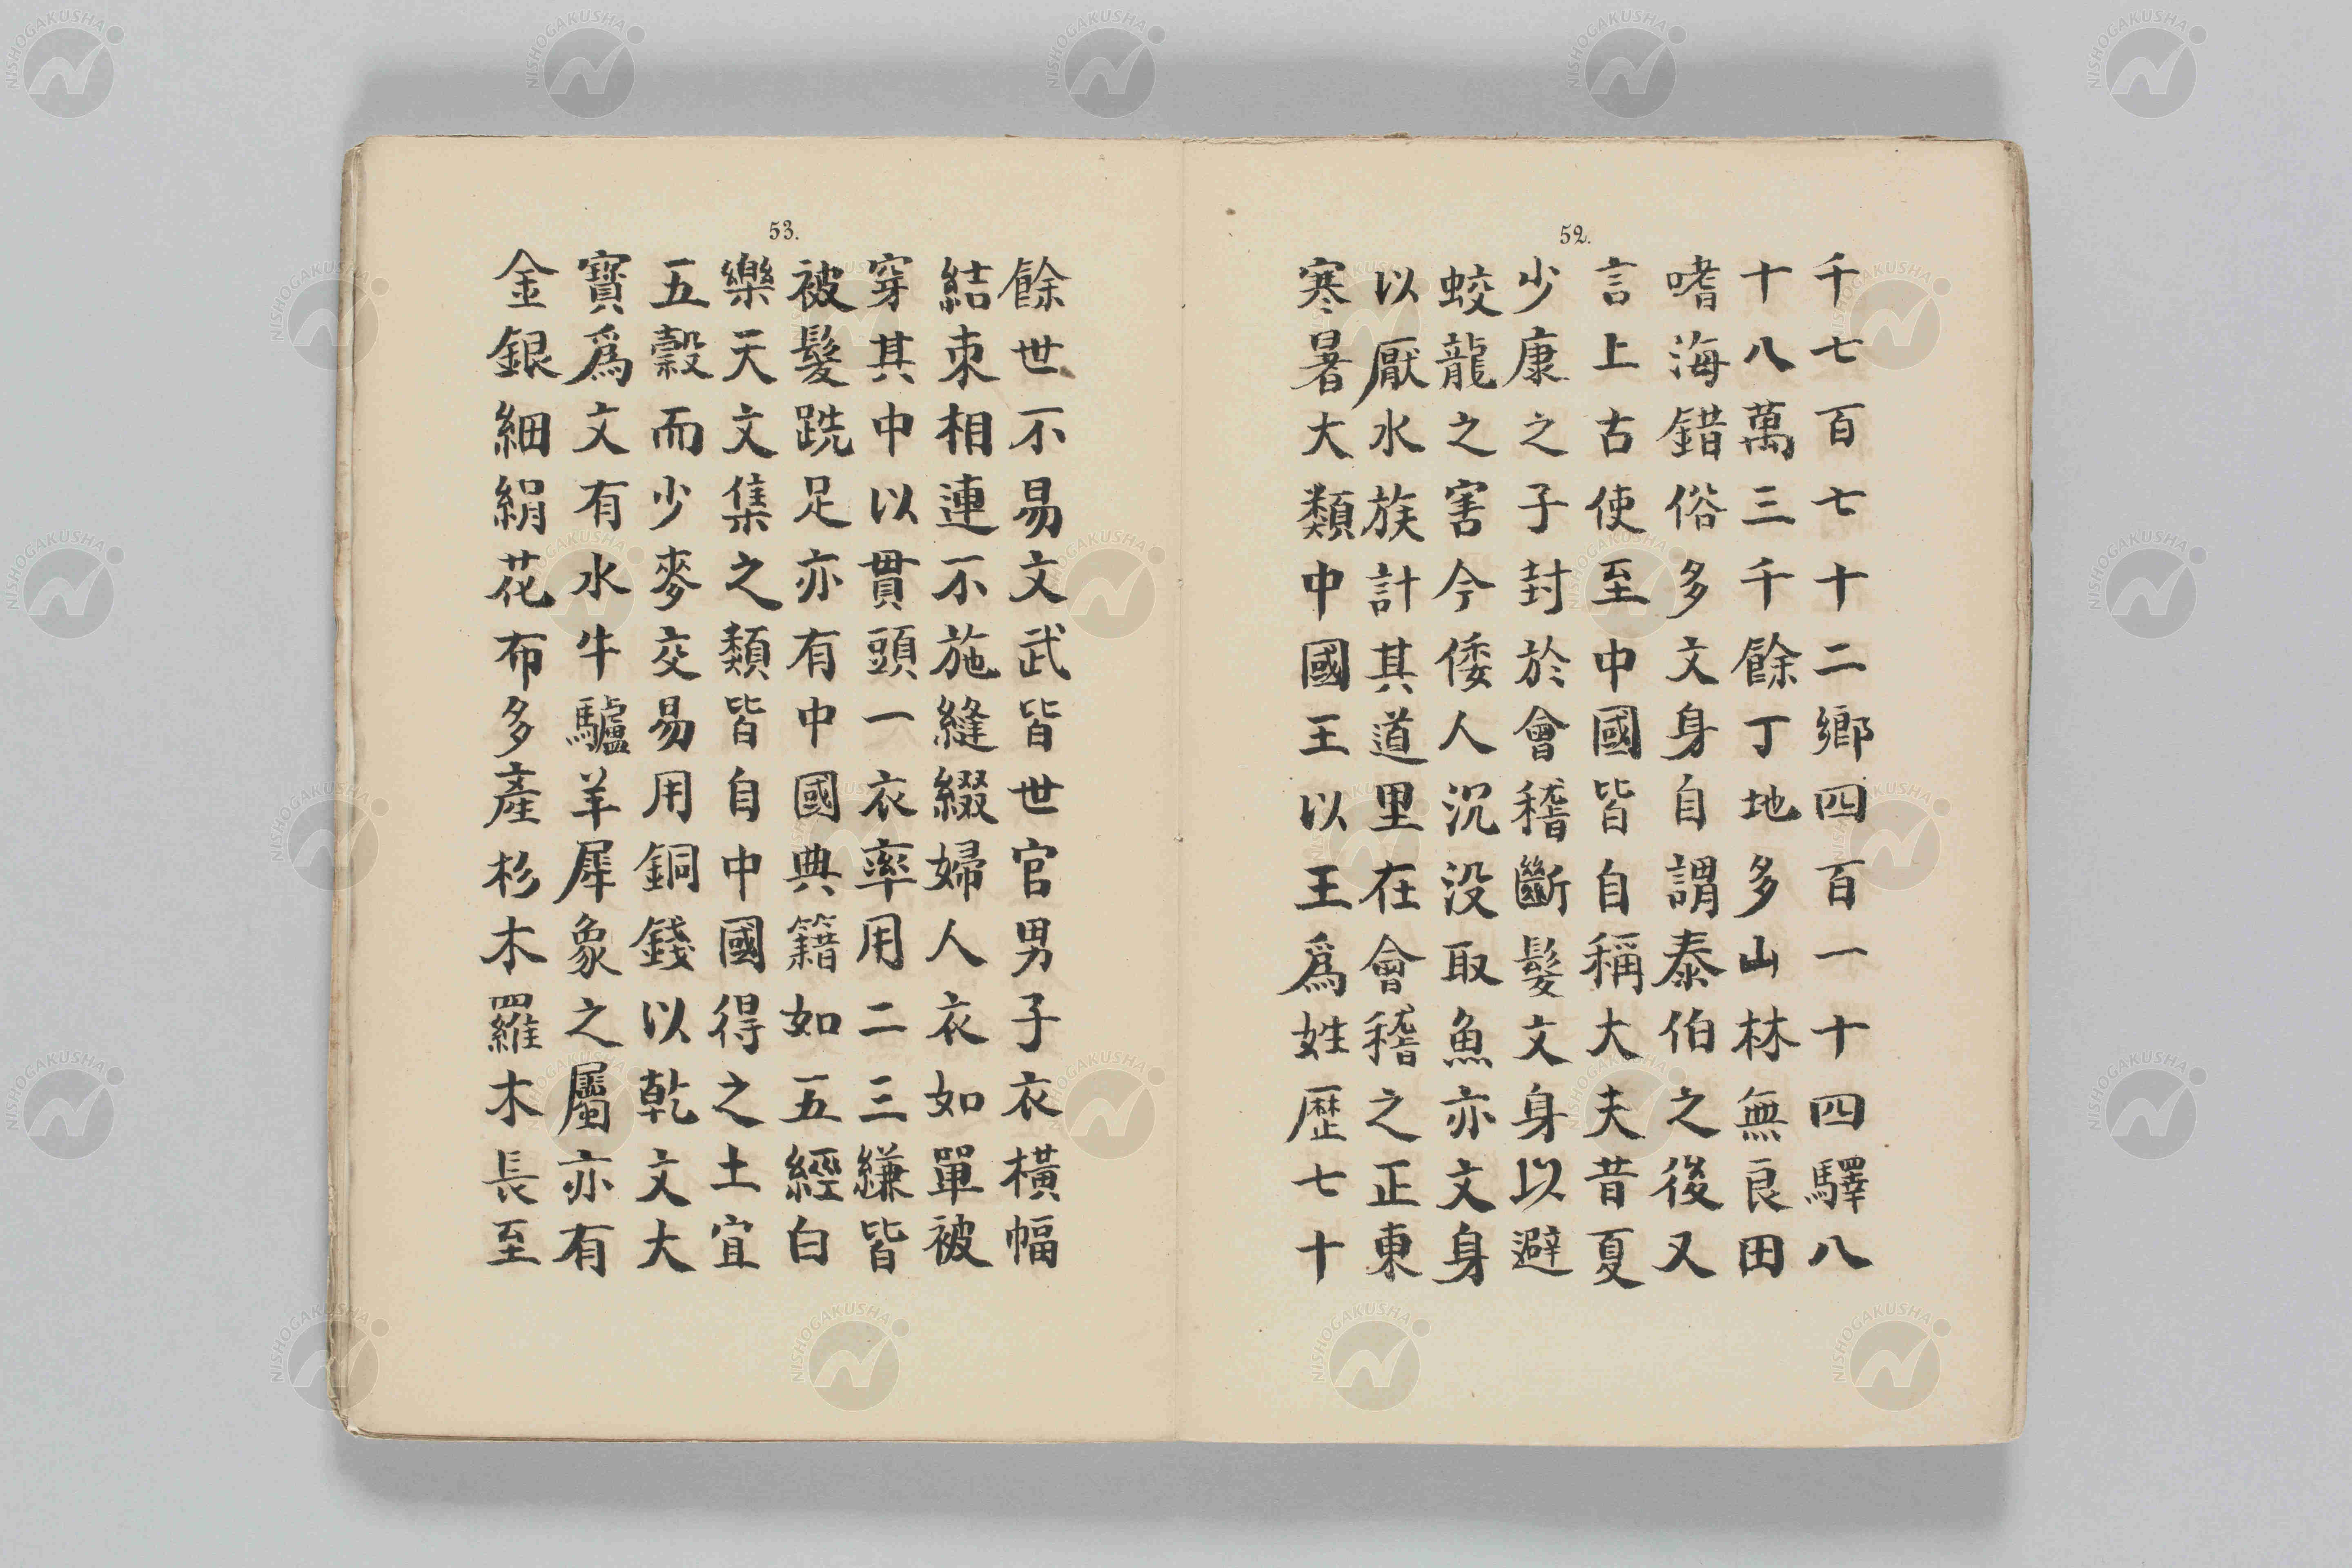 52.
千七百七十二鄉四百一十四驛八
十八萬三千餘丁地多山林無良田
嗜海錯俗多文身自謂泰伯之後又
言上古使至中國皆自稱大夫昔夏
少康之子封於會稽斷髮文身以避
蛟龍之害今倭人沉没取魚亦文身
以厭水族計其道里在會稽之正東
寒暑大類中國王以王爲姓歷七十
53.
餘世不易文武皆世官男子衣橫幅
結束相連不施縫綴婦人衣如單被
穿其中以貫頭一衣率用二三縑皆
被髮跣足亦有中國典籍如五經白
樂天文集之類皆自中國得之土宜
五穀而少麥交易用銅錢以乾文大
寶爲文有水牛驢羊犀象之屬亦有
金銀細絹花布多產杉木羅木長至
NISHOGAKUSHA